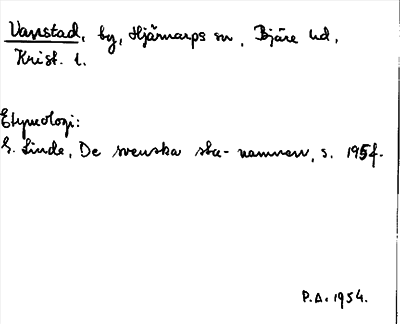 Vanstad, by, Hjärnarps sn, Bjäre hd,
Krist. l.
Etymologi:
G. Linde, De svenska sta-namnen, s. 195f.
P.A. 1954.